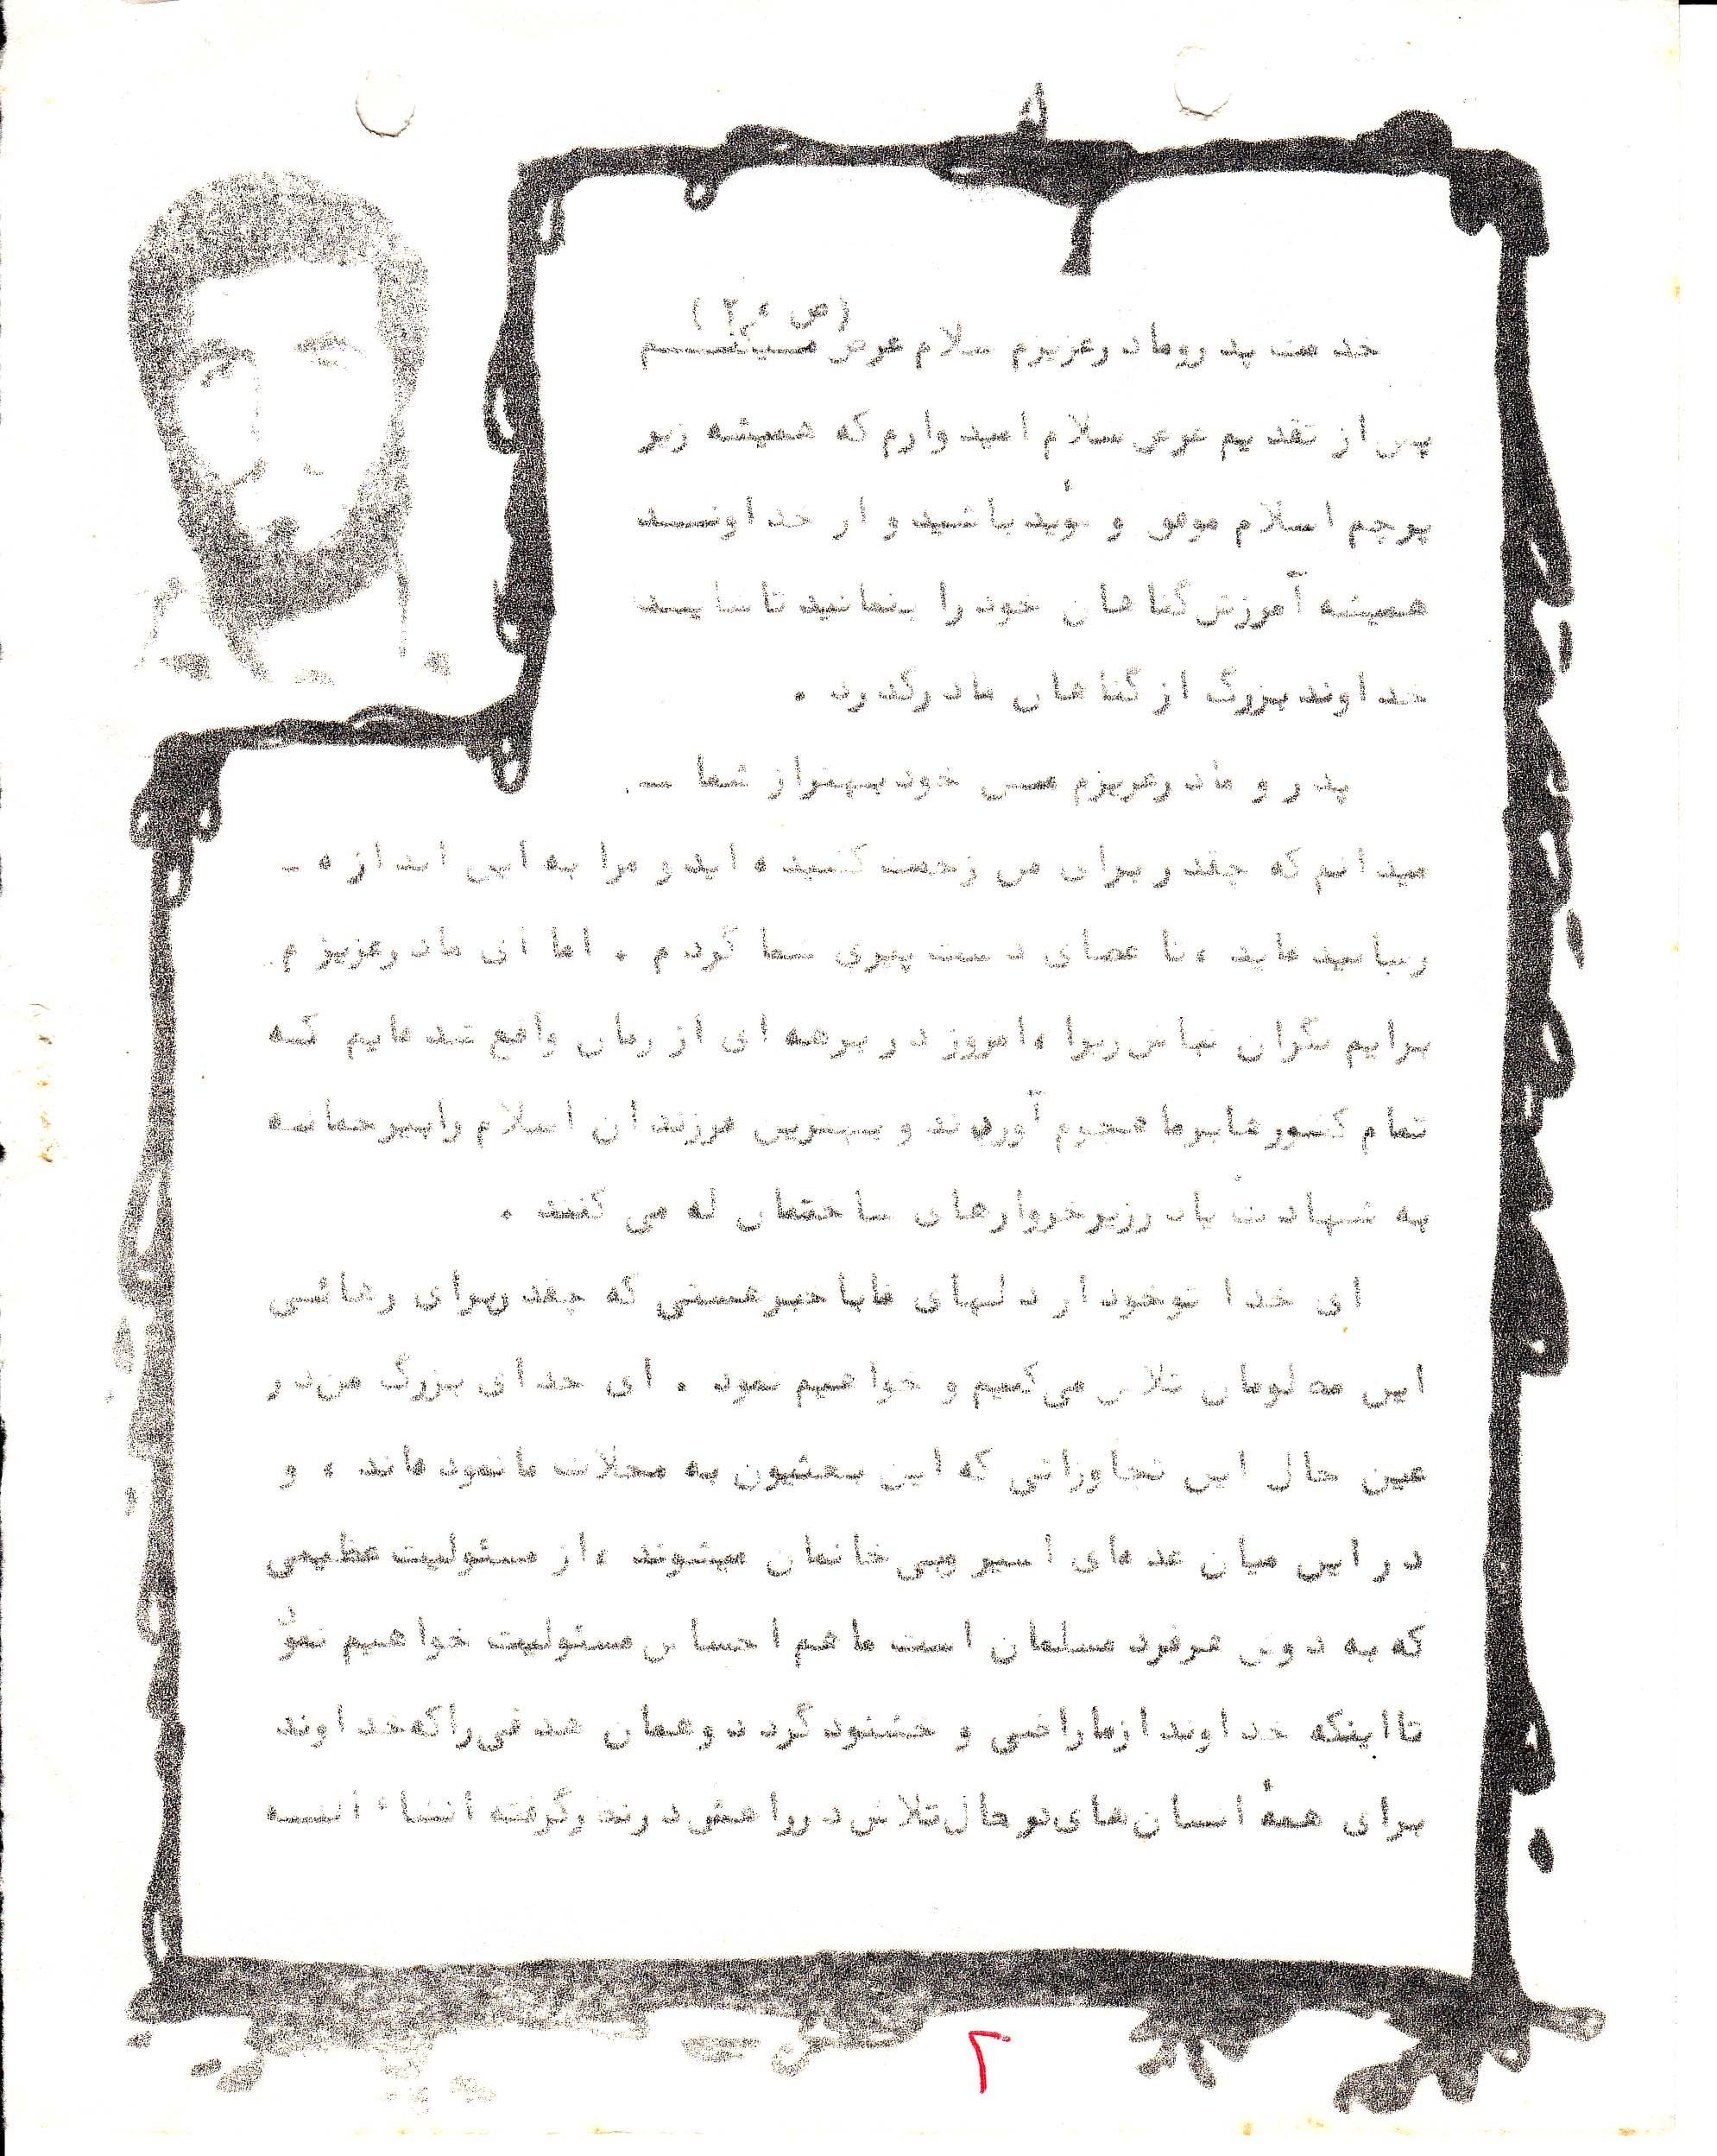 (ص ۲)
خدمت پدر و مادر عزیزم سلام عرض میکنم
پس از تقدیم عرض سلام امیدوارم که همیشه زیر
پرچم اسلام موفق و مؤید باشید و از خداوند
همیشه آمرزش گناهان خود را بنمائید تا شاید
خداوند بزرگ از گناهان مادرگذرد .
پدر و مادر عزیزم من خود بهتر از شما -
میدانم که چقدر برای من زحمت کشیده اید و مرا به این اندازه -
رسانیده اید ، تا عصای دست پیری شما گردم . اما ای مادر عزیزم
برایم نگران نباش زیرا ، امروز در برهه ای از زمان واقع شده ایم که
تمام کشورها بر ما هجوم آوردند و بهترین فرزندان اسلام را بیرحمانه
به شهادت یا در زیر خروارهای ساختمان له می کنند .
ای خدا تو خود از دلهای ما با خبر هستی که چقدر برای رهائی
این مظلومان تلاش می کنیم و خواهیم نمود . ای خدای بزرگ من در
عین حال این تجاوزاتی که این بعثیون به محلات ما نموده اند ، و
در این میان عده ای اسیر و بی خانمان میشوند ، از مسئولیت عظیمی
که به دوش هر فرد مسلمان است ما هم احساس مسئولیت خواهیم نمود
تا اینکه خداوند از ما راضی و خشنود گردد و همان هدفی را که خداوند
برای همهٔ انسان های در حال تلاش در راهش در نظر گرفته انشاء الله
۲